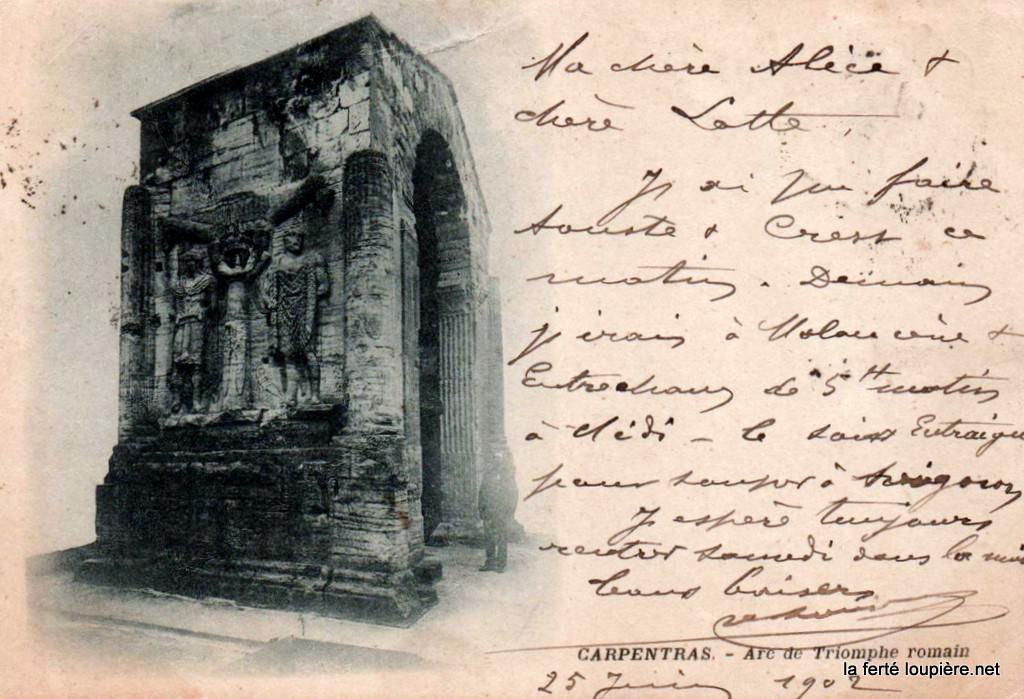 Ma chère Alice &
chère Lotte,
J'ai pu faire
& Crest ce
matin. Demain
j'irais à Malaucène &
Entrechaux de 5 H matin
à Médi - le soir Entraigues
pour souper à Avignon
J'espère toujours
rentrer samedi dans la nuit
bons baisers
CARPENTRAS. - Arc de Triomphe romain
la ferté loupière.net
25 Juin 1902